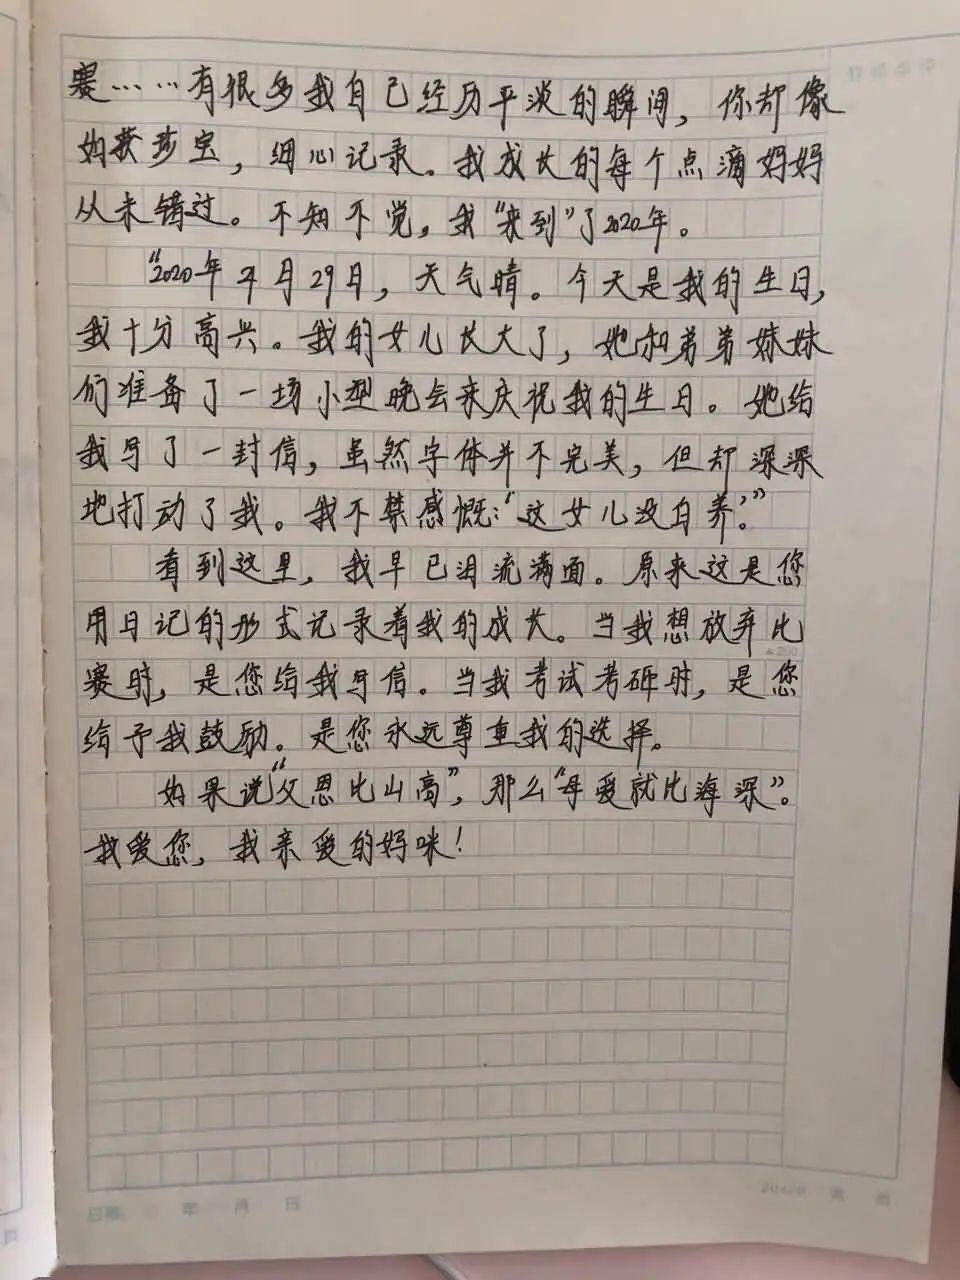 赛……有很多我自己经历平淡的瞬间，你却像
如获珍宝，细心记录。我成长的每个点滴妈妈
从未错过。不知不觉，我“来到”了2020年。
“2020年7月29日，天气晴。今天是我的生日，
我十分高兴。我的女儿长大了，她和弟弟妹妹
们准备了一场小型晚会来庆祝我的生日。她给
我写了一封信，虽然字体并不完美，但却深深
地打动了我。我不禁感慨：‘这女儿没白养’。”
看到这里，我早已泪流满面。原来这是您
用日记的形式记录着我的成长。当我想放弃比
▲200
赛时，是您给我写信。当我考试考砸时，是您
给予我鼓励。是您永远尊重我的选择。
如果说“父恩比山高”，那么“母爱就比海深”。
我爱您，我亲爱的妈咪！
日期 年 月 日